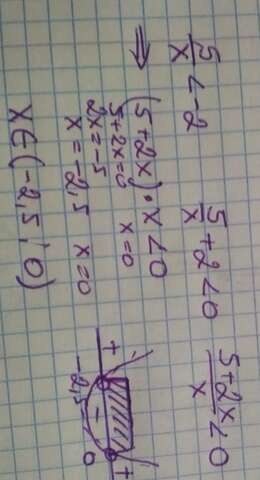 5/x < -2    5/x + 2 < 0    (5+2x)/x < 0
⇒ (5+2x)·x < 0
5+2x=0    x=0
2x=-5
x=-2,5    x=0
+ - +
-2,5 0
x ∈ (-2,5 ; 0)